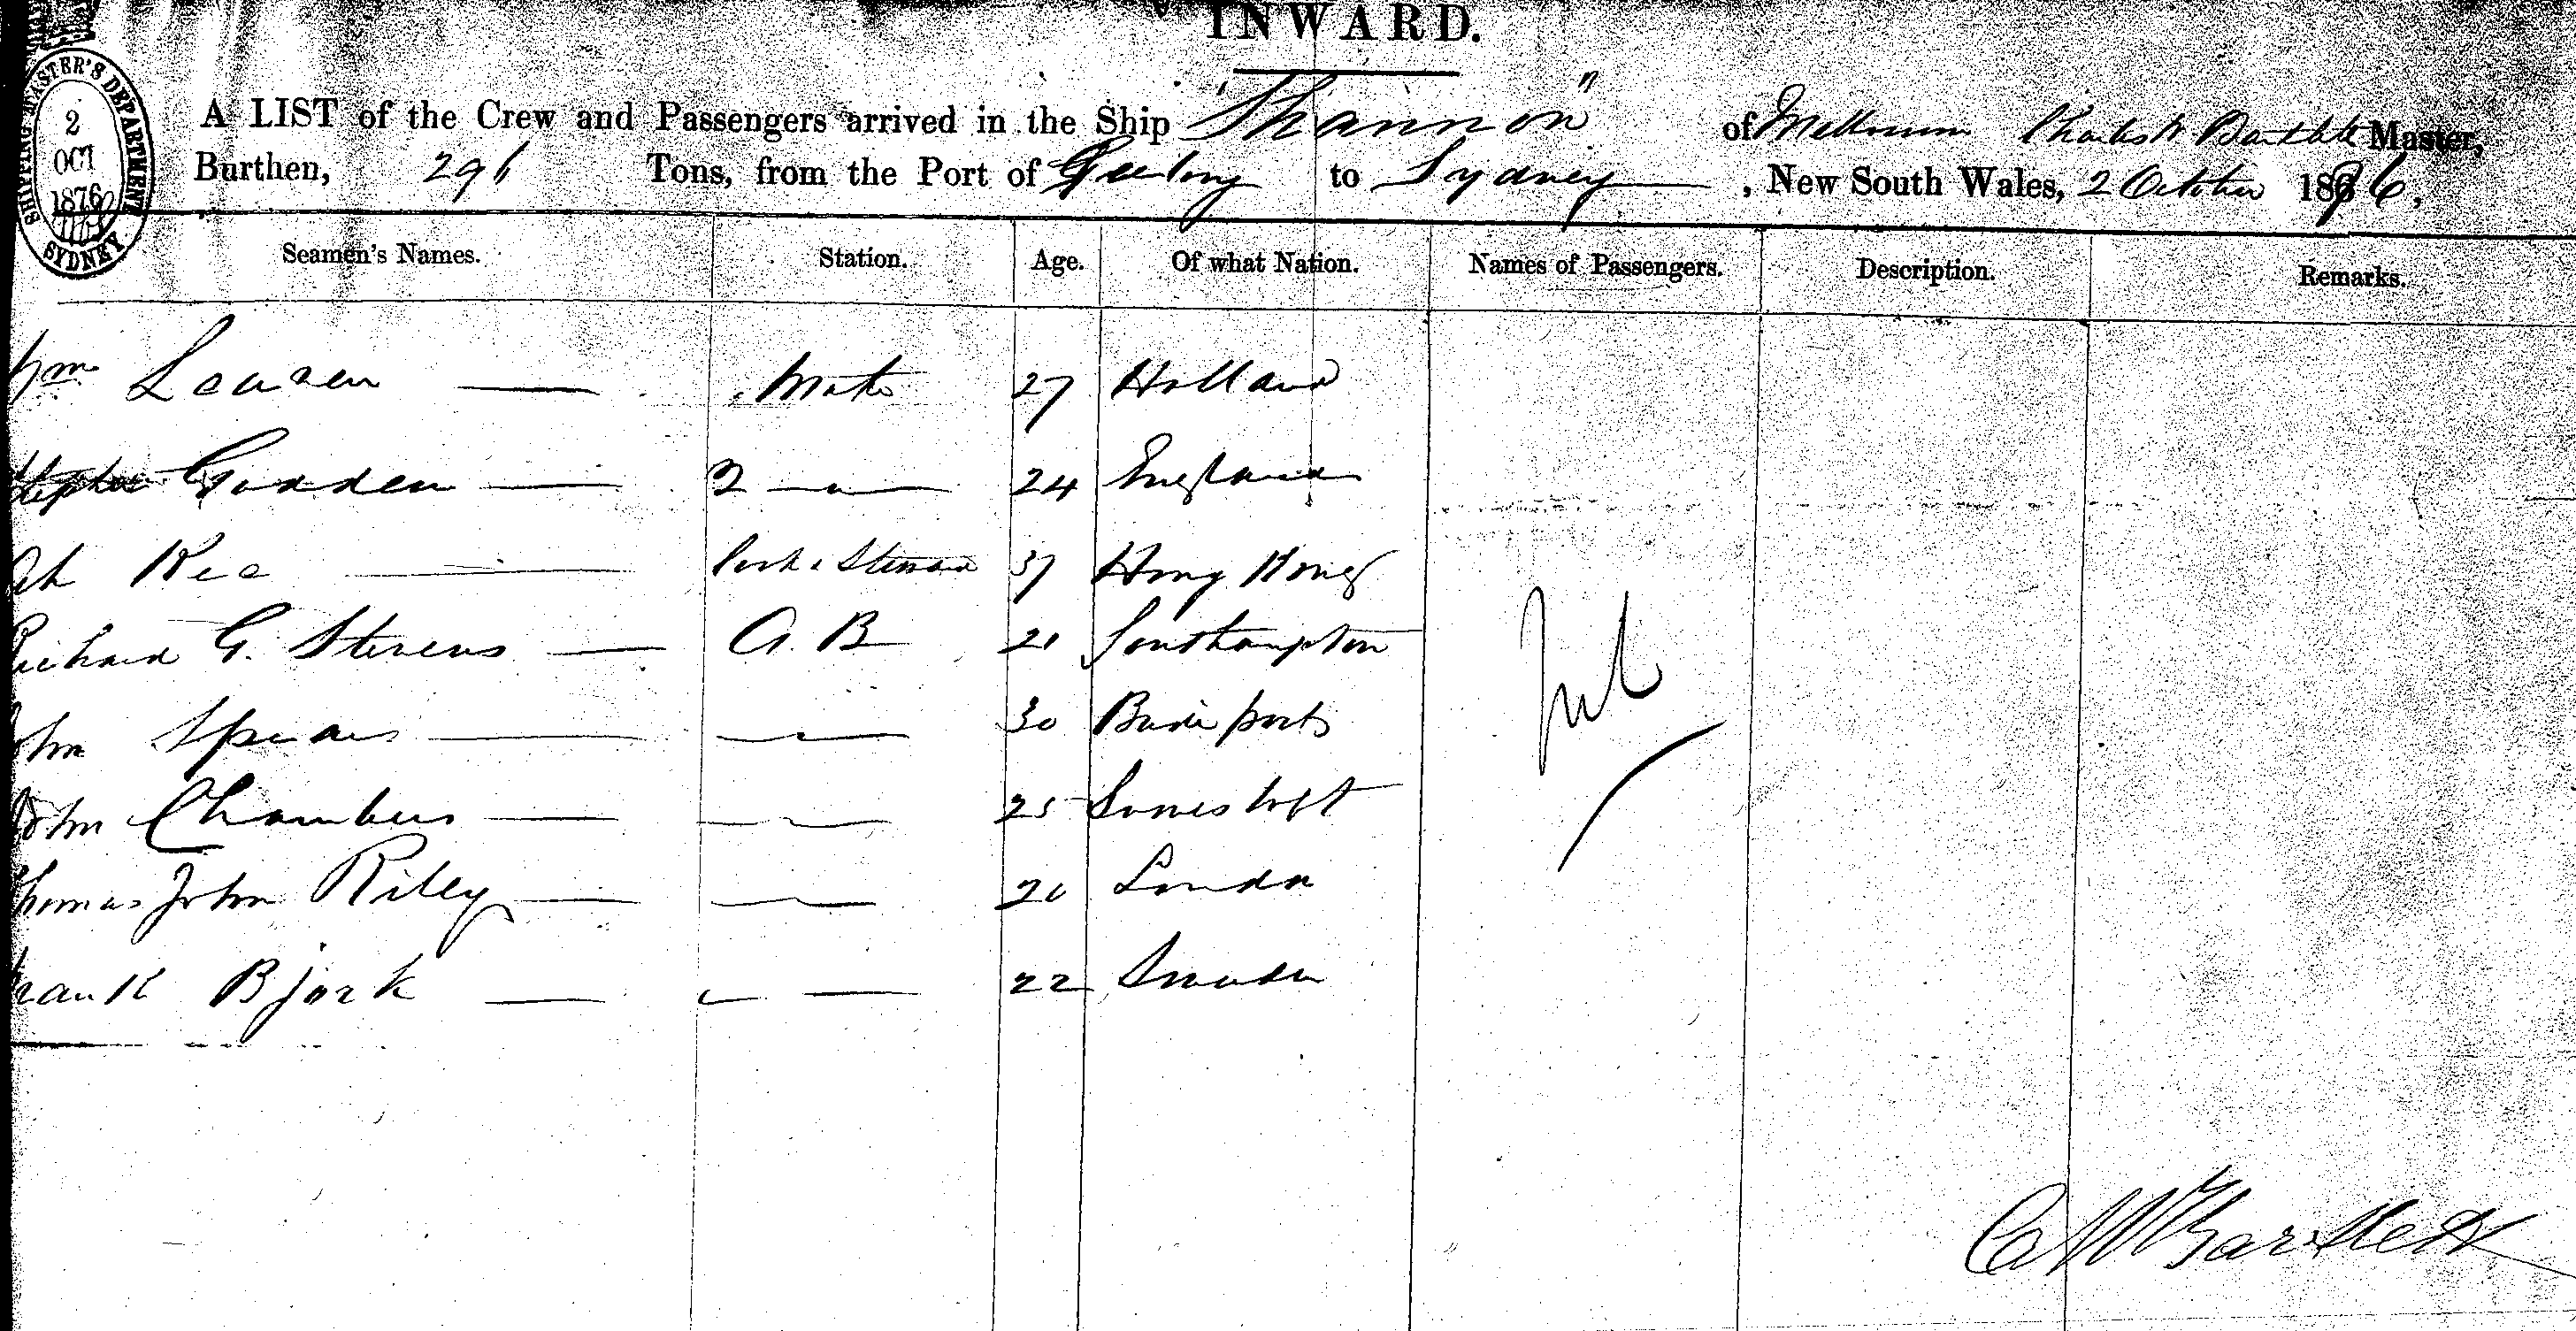 INWARD.
SHIPPING MASTER'S DEPARTMENT
2
OCT
1876
SYDNEY
A LIST of the Crew and Passengers arrived in the Ship "Shannon" of Melbourne Charles W Bartlett Master,
Burthen, 296 Tons, from the Port of Geelong to Sydney, New South Wales, 2 October 1876,
Seamen's Names. Station. Age. Of what Nation. Names of Passengers. Description. Remarks.
Wm Mate 27 Holland
Stephen Godden 2 — " — 24 England
Ah Kee Cook & Steward 37 Hong Kong
Richard G. Stevens A. B 21 Southampton
John Spears 30
John Chambers 25 Lowestoft
Thomas John Riley 20 London
Frank Bjork 22 Sweden
Nil
C W Bartlett